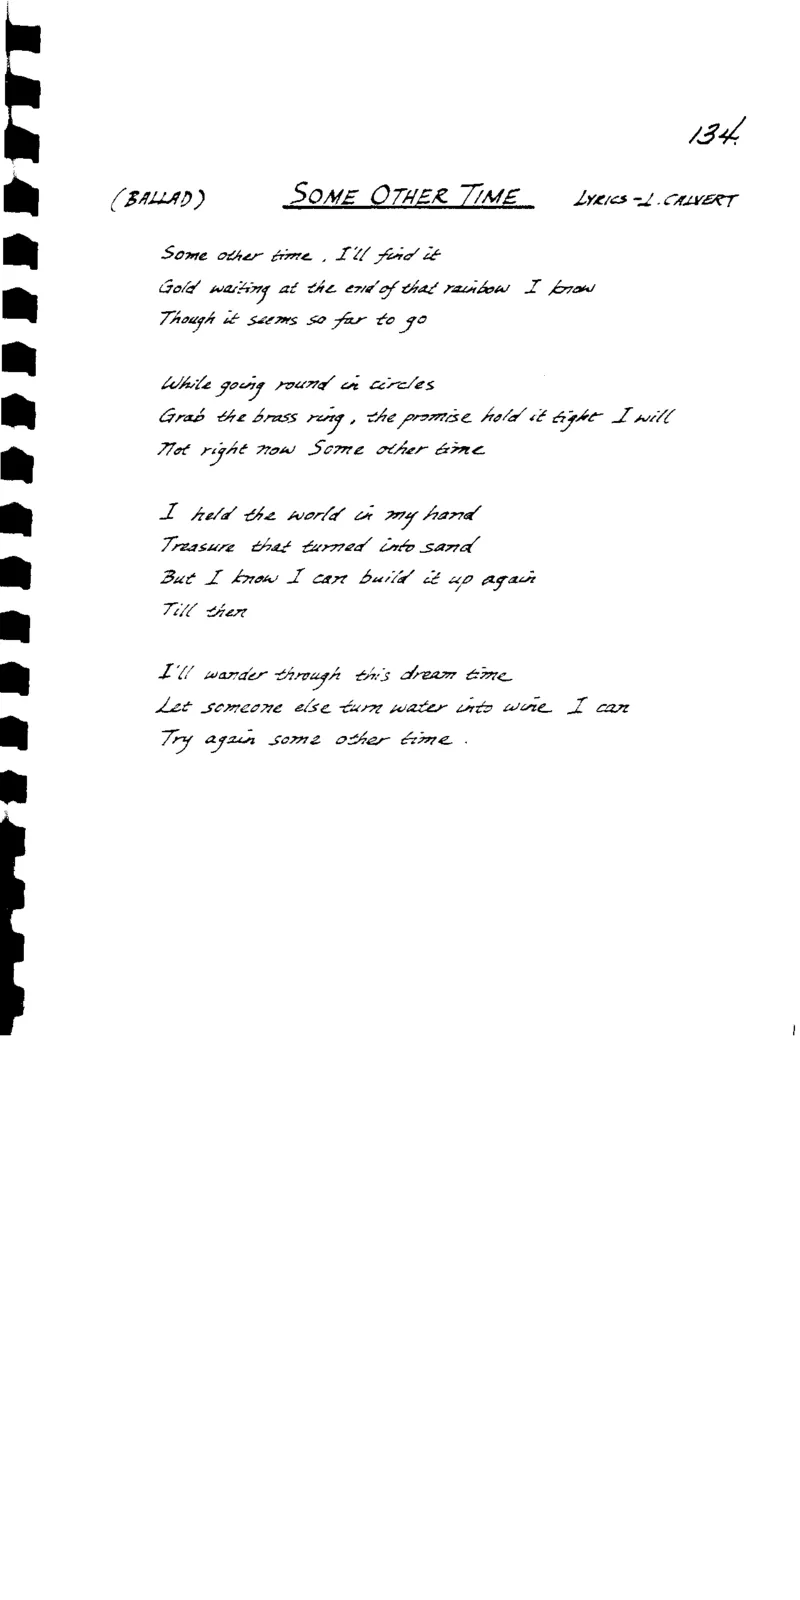 134.
(BALLAD) SOME OTHER TIME LYRICS - L. CALVERT
Some other time, I'll find it
Gold waiting at the end of that rainbow I know
Though it seems so far to go
While going round in circles
Grab the brass ring, the promise hold it tight I will
Not right now Some other time
I held the world in my hand
Treasure that turned into sand
But I know I can build it up again
Till then
I'll wander through this dream time
Let someone else turn water into wine I can
Try again some other time.